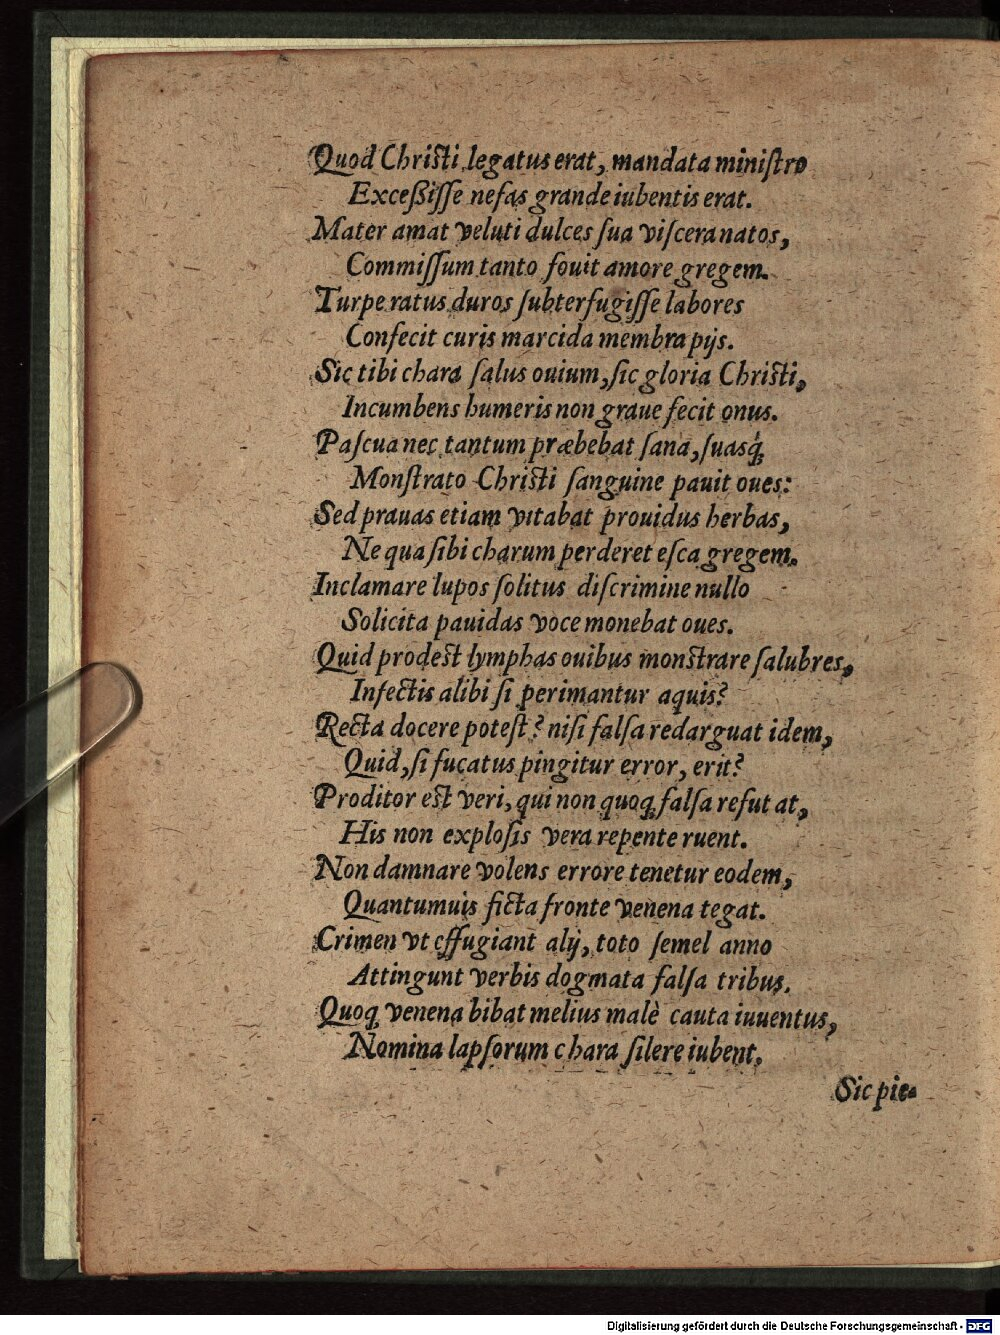 Quod Christi legatus erat, mandata miniſtro
Exceßiſſe nefas grande iubentis erat.
Mater amat veluti dulces ſua viſcera natos,
Commiſſum tanto fouit amore gregem.
Turpe ratus duros ſubterfugiſſe labores
Confecit curis marcida membra pijs.
Sic tibi chara ſalus ouium, ſic gloria Christi,
Incumbens humeris non graue fecit onus.
Paſcua nec tantum præbebat ſana, ſuasq́;
Monſtrato Christi ſanguine pauit oues:
Sed prauas etiam vitabat prouidus herbas,
Ne qua ſibi charum perderet eſca gregem.
Inclamare lupos ſolitus diſcrimine nullo
Solicita pauidas voce monebat oues.
Quid prodest lymphas ouibus monstrare ſalubres,
Infectis alibi ſi perimantur aquis?
Recta docere poteſt? niſi falſa redarguat idem,
Quid, ſi fucatus pingitur error, erit?
Proditor est veri, qui non quoq; falſa refutat,
His non exploſis vera repente ruent.
Non damnare volens errore tenetur eodem,
Quantumuis ficta fronte venena tegat.
Crimen vt effugiant alij, toto ſemel anno
Attingunt verbis dogmata falſa tribus.
Quoq; venena bibat melius malè cauta iuuentus,
Nomina lapſorum chara ſilere iubent.
Sic pie-
Digitalisierung gefördert durch die Deutsche Forschungsgemeinschaft - DFG